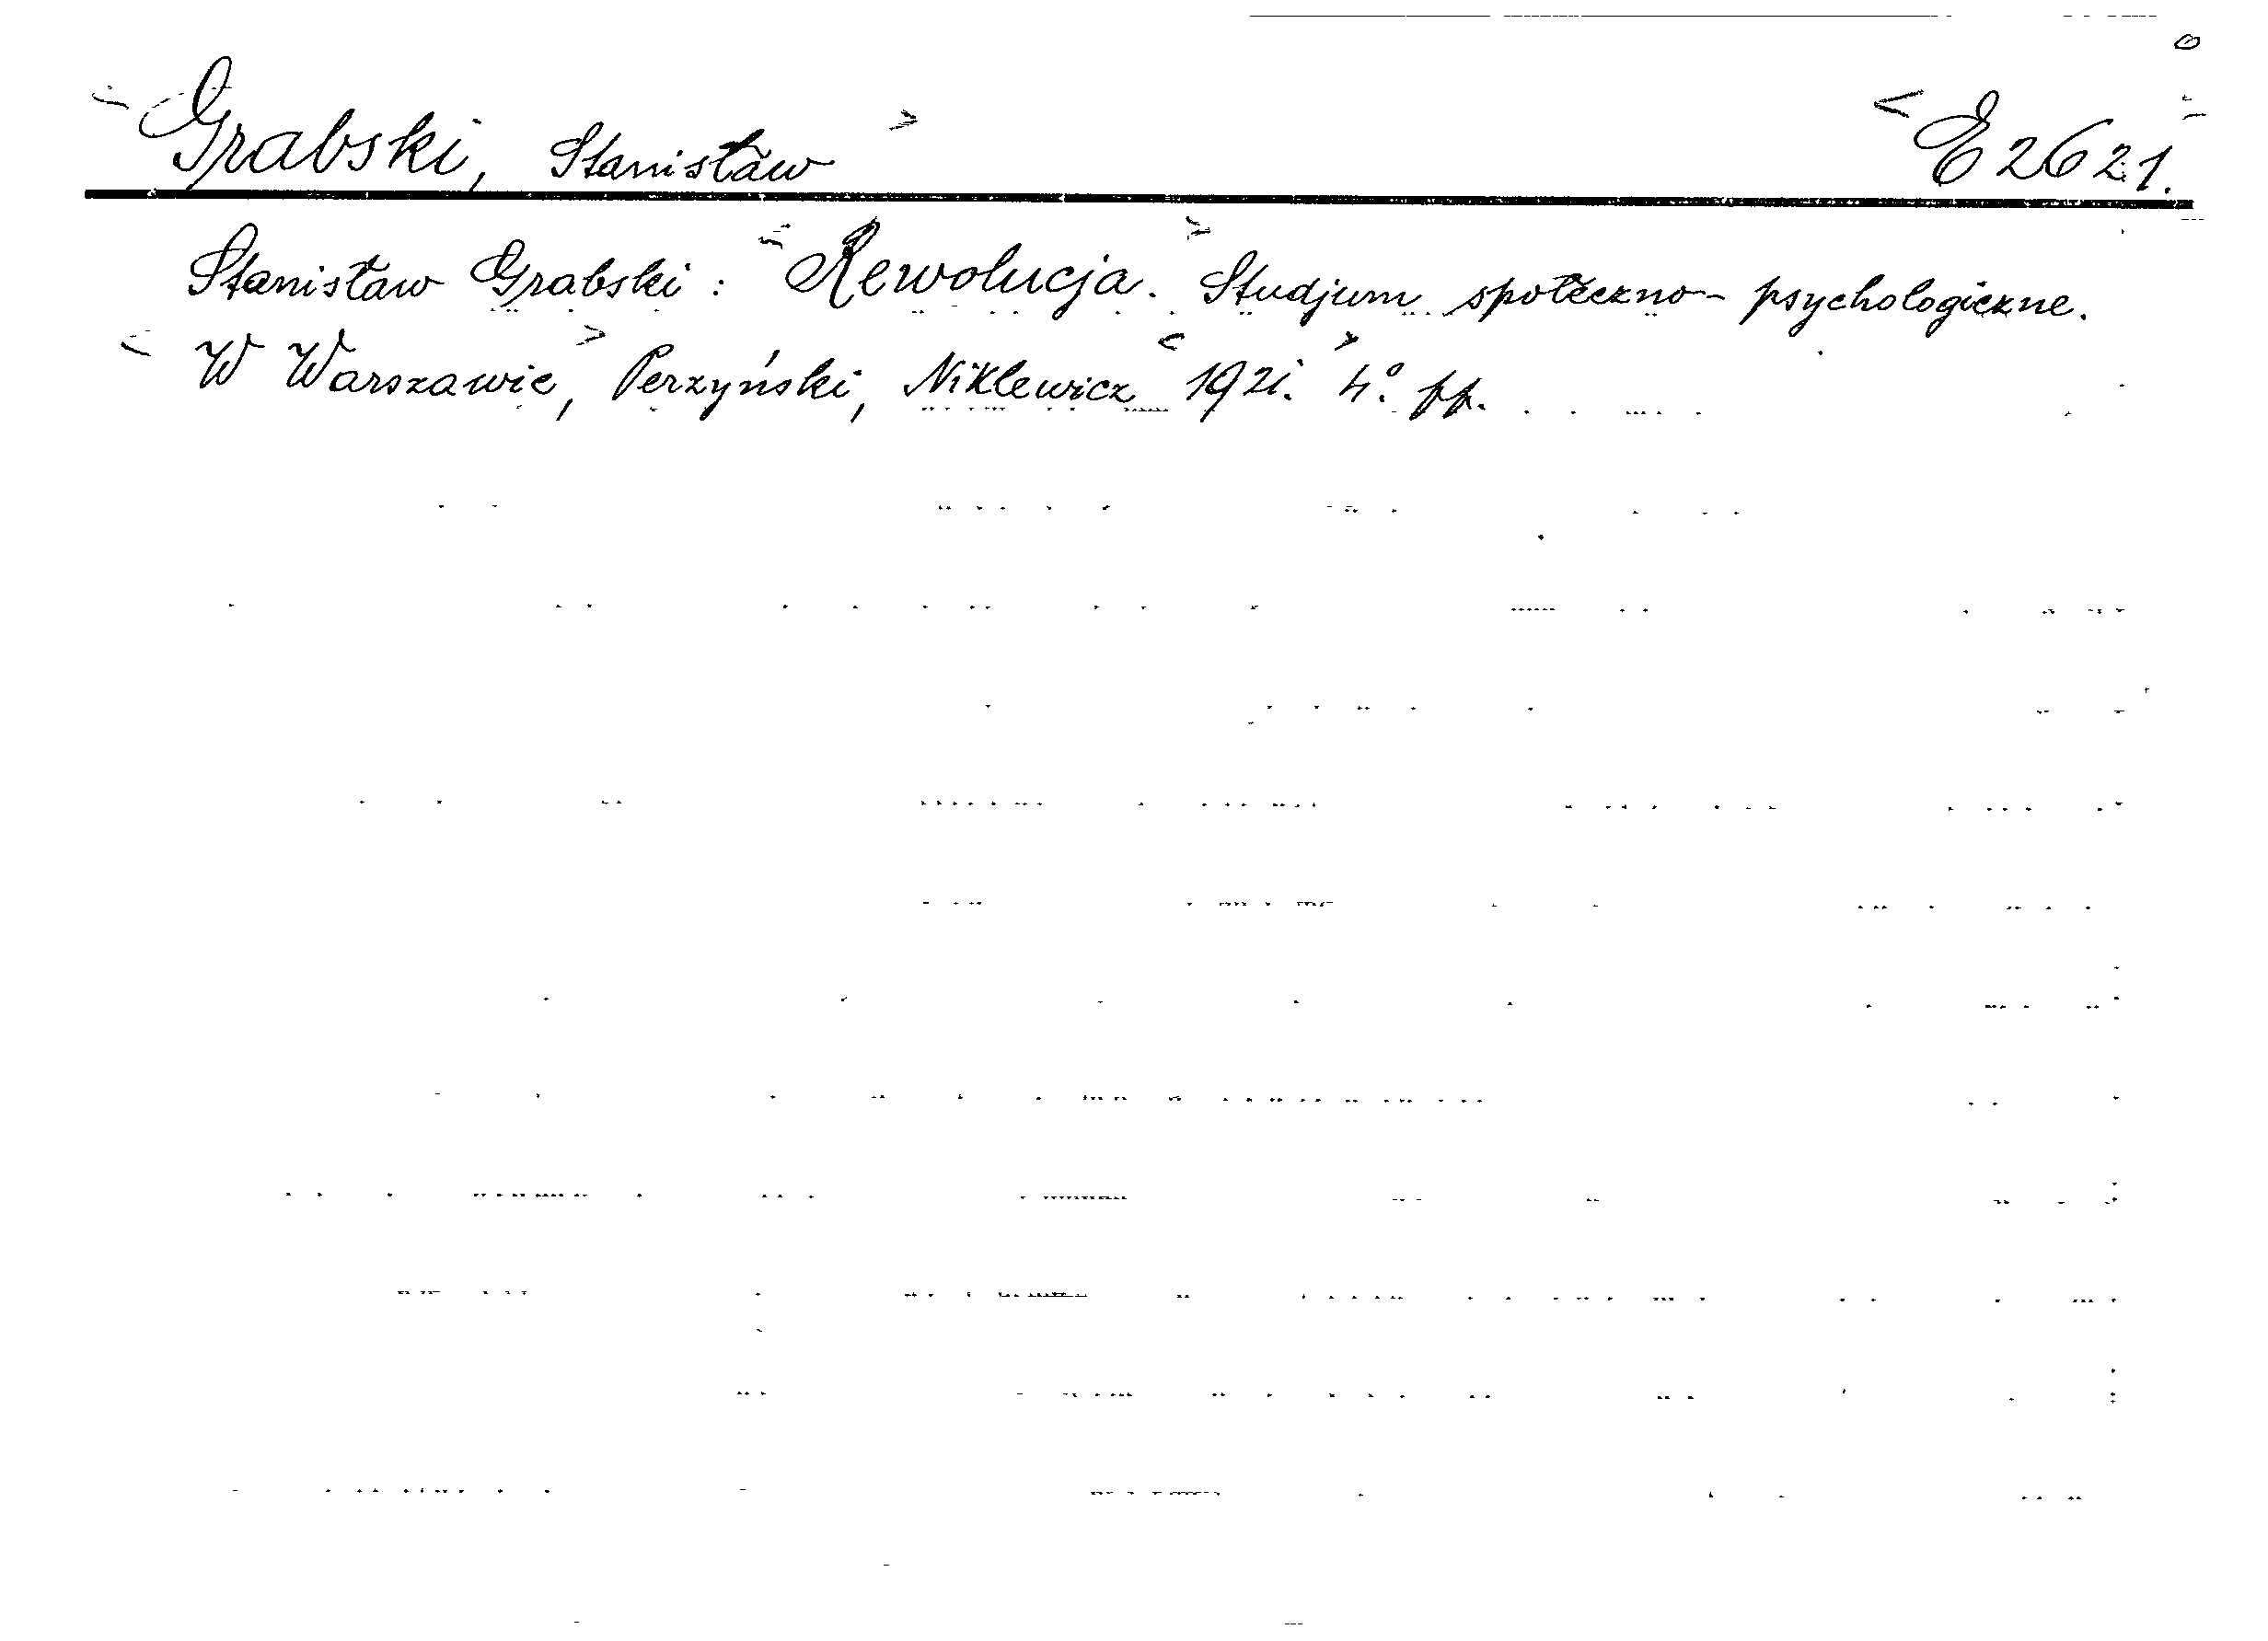 <Grabski, Stanisław> <E 2621.>
Stanisław Grabski: <Rewolucja.> Studjum społeczno-psychologiczne.
<W Warszawie,> Perzyński, Niklewicz <1921.> 4° pp.